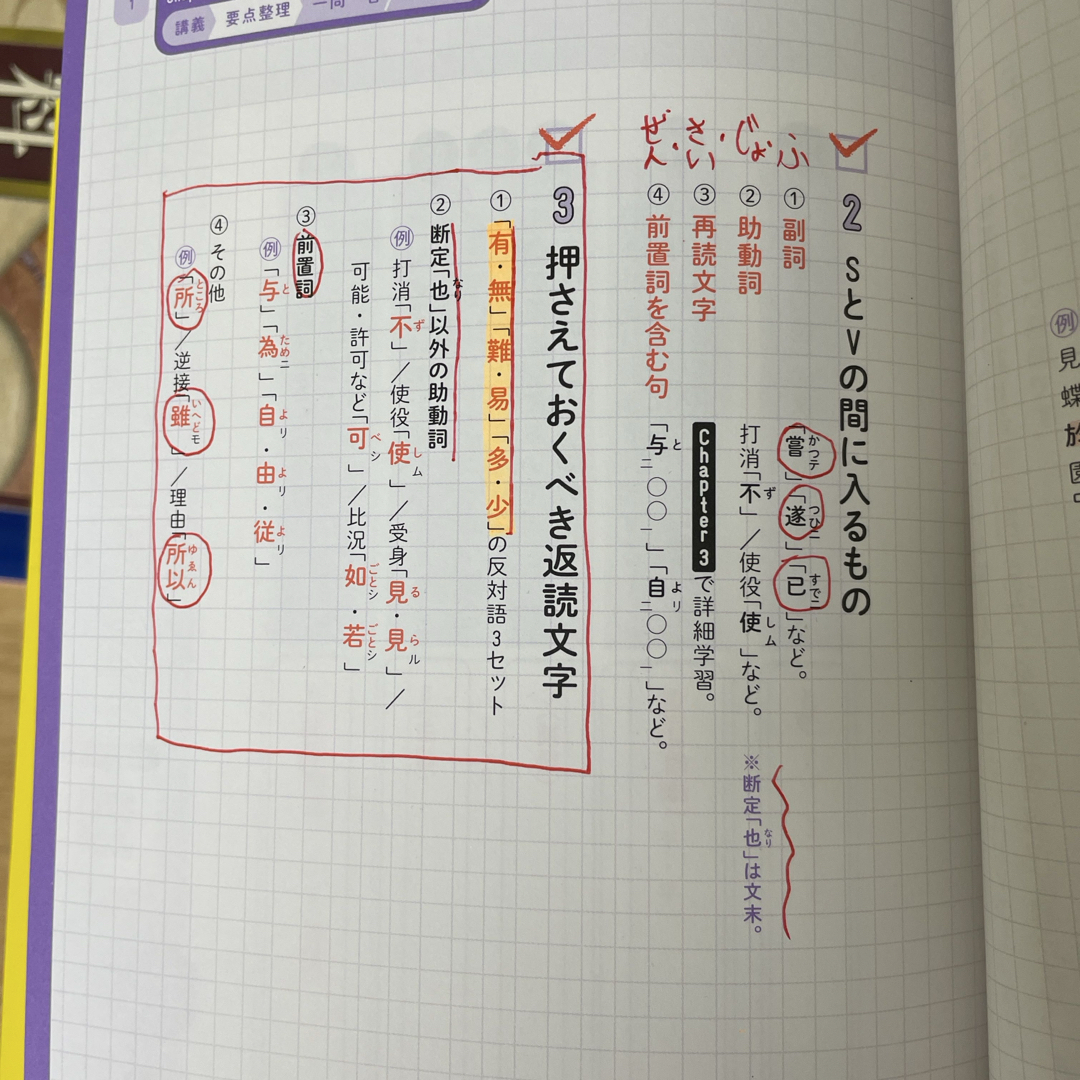 講義 要点整理
ふ・じょ・さい・ぜん
2 SとVの間に入るもの
①副詞 「嘗」「遂」「已」など。
②助動詞 打消「不」／使役「使」など。 ※断定「也」は文末。
③再読文字 Chapter 3で詳細学習。
④前置詞を含む句 「与二〇〇一」「自二〇〇一」など。
3 押さえておくべき返読文字
①「有・無」「難・易」「多・少」の反対語3セット
②断定「也」以外の助動詞
例 打消「不」／使役「使」／受身「見・見」／
可能・許可など「可」／比況「如・若」
③前置詞
例「与」「為」「自・由・従」
④その他
例「所」／逆接「雖」／理由「所以」
例